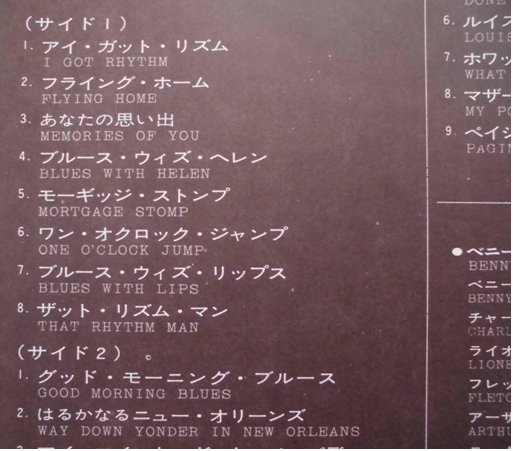 (サイド1)
1. アイ・ガット・リズム
I GOT RHYTHM
2. フライング・ホーム
FLYING HOME
3. あなたの思い出
MEMORIES OF YOU
4. ブルース・ウィズ・ヘレン
BLUES WITH HELEN
5. モーギッジ・ストンプ
MORTGAGE STOMP
6. ワン・オクロック・ジャンプ
ONE O'CLOCK JUMP
7. ブルース・ウィズ・リップス
BLUES WITH LIPS
8. ザット・リズム・マン
THAT RHYTHM MAN
(サイド2)
1. グッド・モーニング・ブルース
GOOD MORNING BLUES
2. はるかなるニュー・オリーンズ
WAY DOWN YONDER IN NEW ORLEANS
DONE
6. ルイス
LOUIS
7. ホワッ
WHAT
8. マザー
MY PO
9. ペイジ
PAGIN
●ベニー
BENNY
ベニー
BENNY
チャー
CHARL
ライオ
LIONE
フレッ
FLETC
アーサ
ARTHU